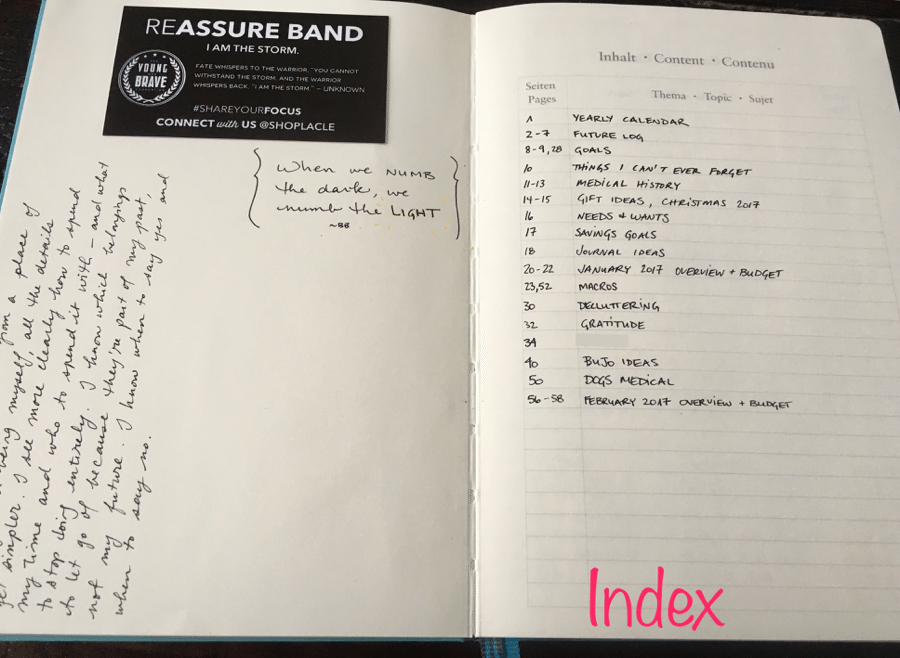 REASSURE BAND
I AM THE STORM.
THE
YOUNG
&
BRAVE
FATE WHISPERS TO THE WARRIOR, "YOU CANNOT
WITHSTAND THE STORM. AND THE WARRIOR
WHISPERS BACK, "I AM THE STORM." - UNKNOWN
#SHAREYOURFOCUS
CONNECT with US @SHOPLACLE
When we NUMB
the dark, we
numb the LIGHT
~BB
from a place of
being myself, all the details
get simpler. I see more clearly how to spend
my time and who to spend it with - and what
to stop doing entirely. I know which belongings
to let go of because they're part of my past,
not my future. I know when to say yes and
when to say no.
Inhalt · Content · Contenu
Seiten
Pages
Thema · Topic · Sujet
1 YEARLY CALENDAR
2-7 FUTURE LOG
8-9, 28 GOALS
10 THINGS I CAN'T EVER FORGET
11-13 MEDICAL HISTORY
14-15 GIFT IDEAS, CHRISTMAS 2017
16 NEEDS & WANTS
17 SAVINGS GOALS
18 JOURNAL IDEAS
20-22 JANUARY 2017 OVERVIEW + BUDGET
23,52 MACROS
30 DECLUTTERING
32 GRATITUDE
34
40 BUJO IDEAS
50 DOGS MEDICAL
56-58 FEBRUARY 2017 OVERVIEW + BUDGET
Index